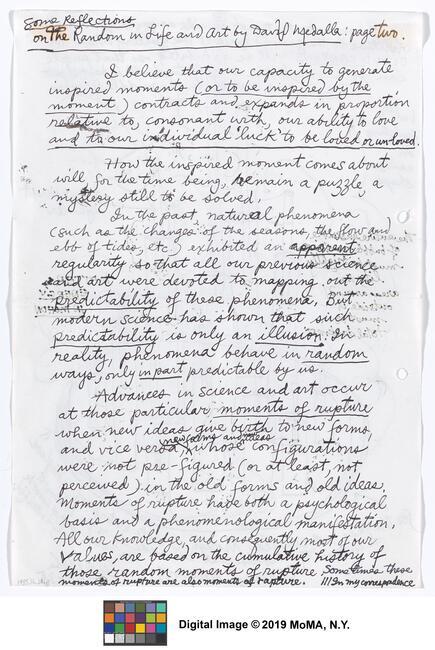 Some Reflections
on the Random in Life and Art by David Medalla: page two.
I believe that our capacity to generate
inspired moments (or to be inspired by the
moment) contracts and expands in proportion
relative to, consonant with, our ability to love
and to our individual 'luck' to be loved or unloved.
How the inspired moment comes about
will, for the time being, remain a puzzle, a
mystery still to be solved.
In the past, natural phenomena
(such as the changes of the seasons, the flow and
ebb of tides, etc) exhibited an apparent
regularity so that all our previous science
and art were devoted to mapping out the
predictability of these phenomena. But
modern science has shown that such
predictability is only an illusion. In
reality, phenomena behave in random
ways, only in part predictable by us.
Advances in science and art occur
at those particular moments of rupture
when new ideas give birth to new forms,
and vice versa, new forms and ideas whose configurations
were not pre-figured (or at least, not
perceived) in the old forms and old ideas.
Moments of rupture have both a psychological
basis and a phenomenological manifestation.
All our knowledge, and consequently most of our
values, are based on the cumulative history of
those random moments of rupture. Sometimes these
moments of rupture are also moments of rapture. ///In my correspondence
Digital Image © 2019 MoMA, N.Y.